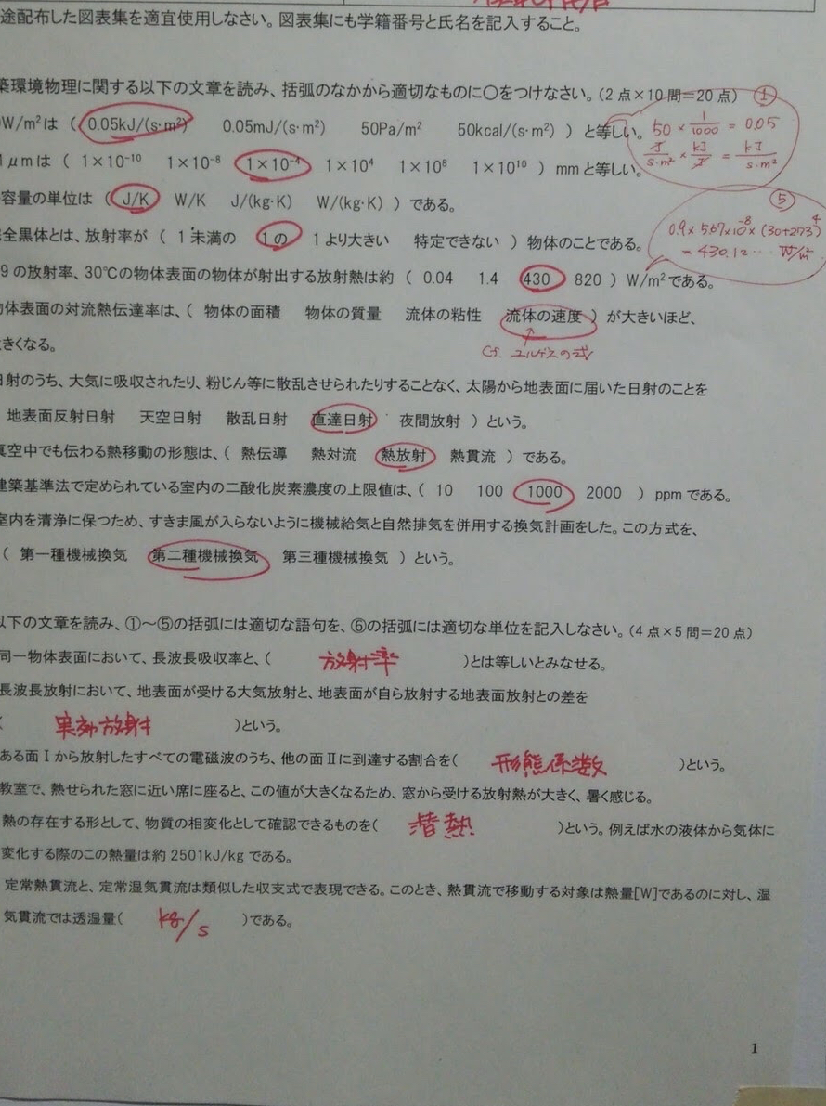 途配布した図表集を適宜使用しなさい。図表集にも学籍番号と氏名を記入すること。
築環境物理に関する以下の文章を読み、括弧のなかから適切なものに〇をつけなさい。(2点×10問=20点) ①
W/m²は ( 0.05kJ/(s·m²) 0.05mJ/(s·m²) 50Pa/m² 50kcal/(s·m²) ) と等しい。 50 × 1/1000 = 0.05
μmは ( 1×10⁻¹⁰ 1×10⁻⁸ 1×10⁻⁴ 1×10⁴ 1×10⁸ 1×10¹⁰ ) mmと等しい。 J/s·m² × kJ/J = kJ/s·m²
容量の単位は ( J/K W/K J/(kg·K) W/(kg·K) ) である。 ⑤
全黒体とは、放射率が ( 1未満の 1の 1より大きい 特定できない ) 物体のことである。 0.9 × 5.67×10⁻⁸ × (30+273)⁴
9の放射率、30℃の物体表面の物体が射出する放射熱は約 ( 0.04 1.4 430 820 ) W/m²である。 430.12… W/㎡
物体表面の対流熱伝達率は、( 物体の面積 物体の質量 流体の粘性 流体の速度 ) が大きいほど、
大きくなる。 cf. ユルゲスの式
日射のうち、大気に吸収されたり、粉じん等に散乱させられたりすることなく、太陽から地表面に届いた日射のことを
地表面反射日射 天空日射 散乱日射 直達日射 夜間放射 ) という。
真空中でも伝わる熱移動の形態は、( 熱伝導 熱対流 熱放射 熱貫流 ) である。
建築基準法で定められている室内の二酸化炭素濃度の上限値は、( 10 100 1000 2000 ) ppmである。
室内を清浄に保つため、すきま風が入らないように機械給気と自然排気を併用する換気計画をした。この方式を、
( 第一種機械換気 第二種機械換気 第三種機械換気 ) という。
以下の文章を読み、①~⑤の括弧には適切な語句を、⑥の括弧には適切な単位を記入しなさい。(4点×5問=20点)
同一物体表面において、長波長吸収率と、( 放射率 )とは等しいとみなせる。
長波長放射において、地表面が受ける大気放射と、地表面が自ら放射する地表面放射との差を
( 実効放射 )という。
ある面Ⅰから放射したすべての電磁波のうち、他の面Ⅱに到達する割合を( 形態係数 )という。
教室で、熱せられた窓に近い席に座ると、この値が大きくなるため、窓から受ける放射熱が大きく、暑く感じる。
熱の存在する形として、物質の相変化として確認できるものを( 潜熱 )という。例えば水の液体から気体に
変化する際のこの熱量は約2501kJ/kgである。
定常熱貫流と、定常湿気貫流は類似した収支式で表現できる。このとき、熱貫流で移動する対象は熱量[W]であるのに対し、湿
気貫流では透湿量( kg/s )である。
1